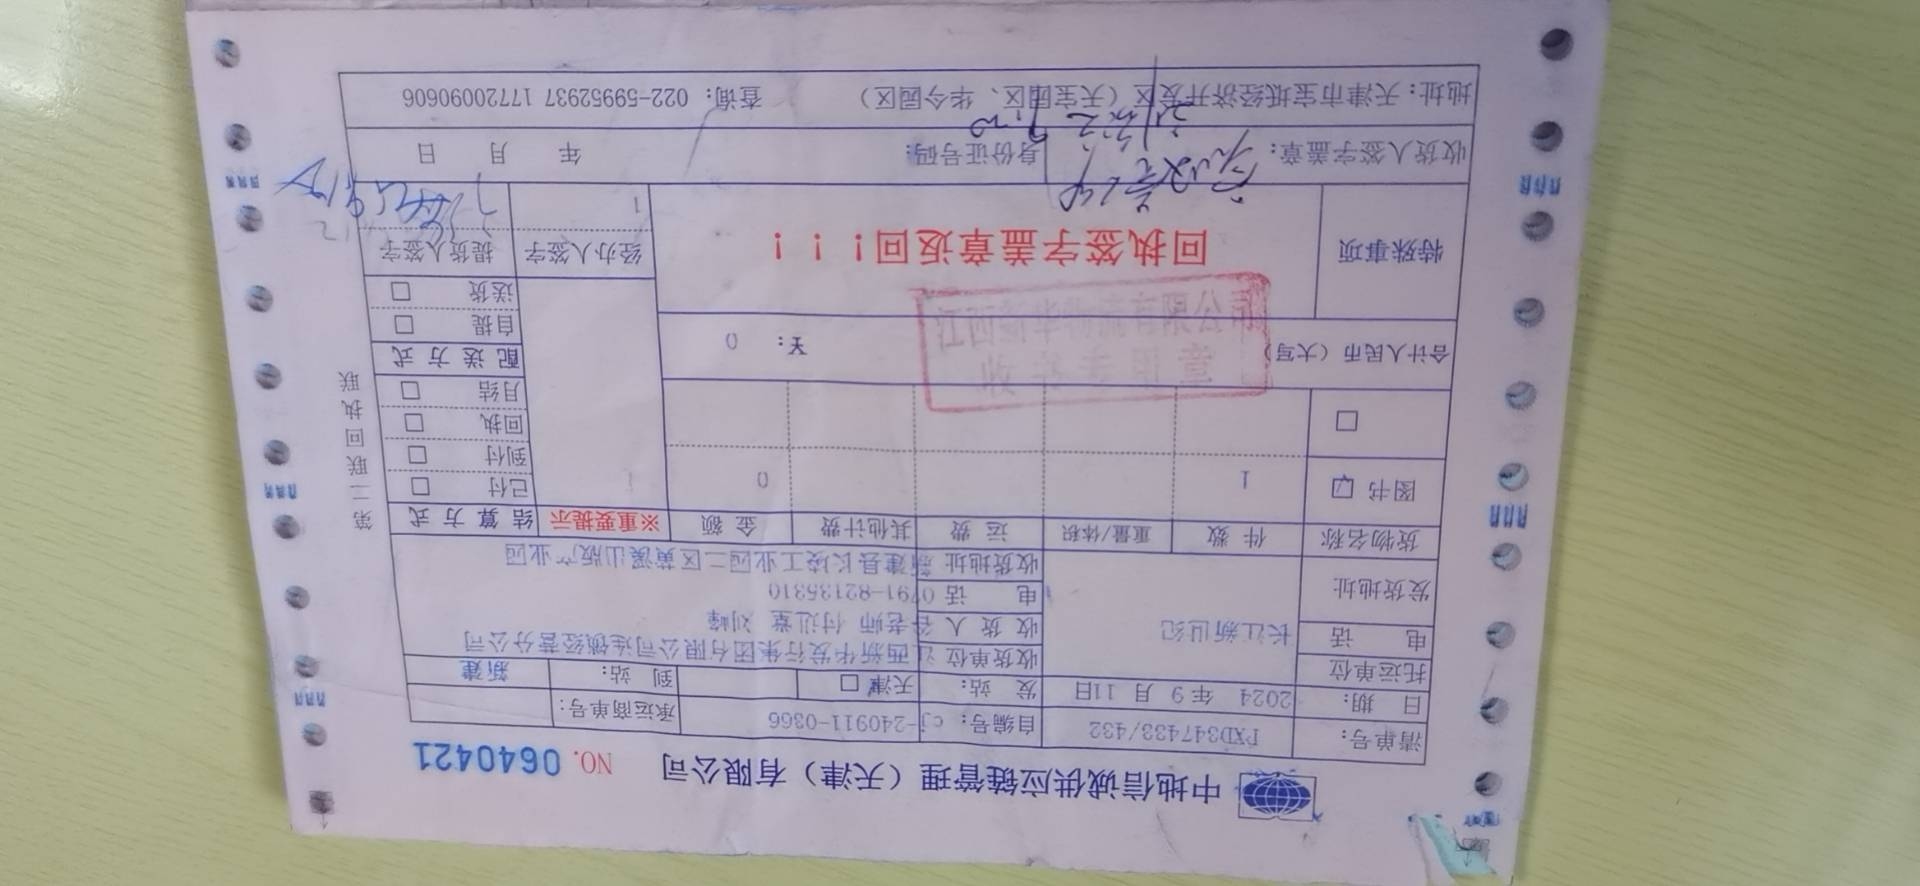 中地信诚供应链管理（天津）有限公司 NO. 0640421
清单号： PXD347433/432 自编号： cj-240911-0366 承运商单号：
日 期： 2024 年 9 月 11日 发 站： 天津 □ 到 站： 新建
托运单位 长江新世纪 收货单位 江西新华发行集团有限公司连锁经营分公司
电 话 收 货 人 老师 付进章 刘峰
发货地址 电 话 0791-82135310
收货地址 新建县长堎工业园二区黄溪出版产业园
货物名称 件 数 重量/体积 运 费 其他计费 金 额 ※重要提示 结 算 方 式
图书 ☑ 1 0 1 已付 □
到付 □
□ 回执 □
月结 □
合计人民币（大写） 天： 0 配 送 方 式
自提 □
送货 □
特殊事项 回执签字盖章返回！！！ 经办人签字 提货人签字
1
收货人签字盖章： 身份证号码： 年 月 日
地址：天津市宝坻经济开发区（天宝园区、华今园区） 查询：022-59952937 17720090606
第二联 回执联
江西新华物流有限公司
收书专用章